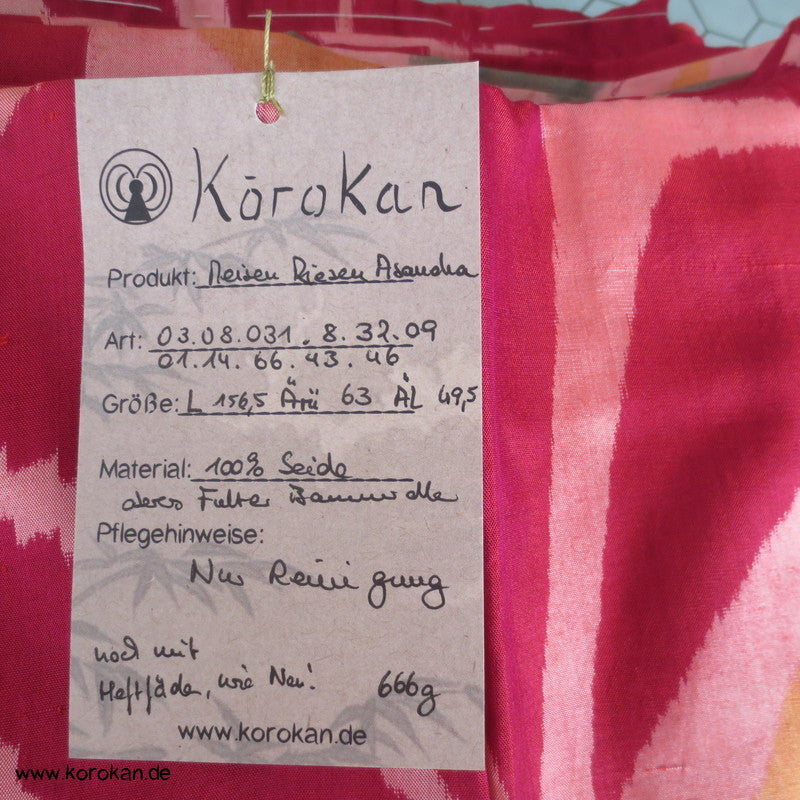 Kōrokan
Produkt: Meisen Riesen Asanoha
Art: 03.08.031.8.32.09
01.14.66.43.46
Größe: L 156,5 Ärü 63 ÄL 49,5
Material: 100% Seide
Futter Baumwolle
Pflegehinweise:
Nur Reinigung
noch mit
Heftfäden, wie Neu! 666g
www.korokan.de
www.korokan.de